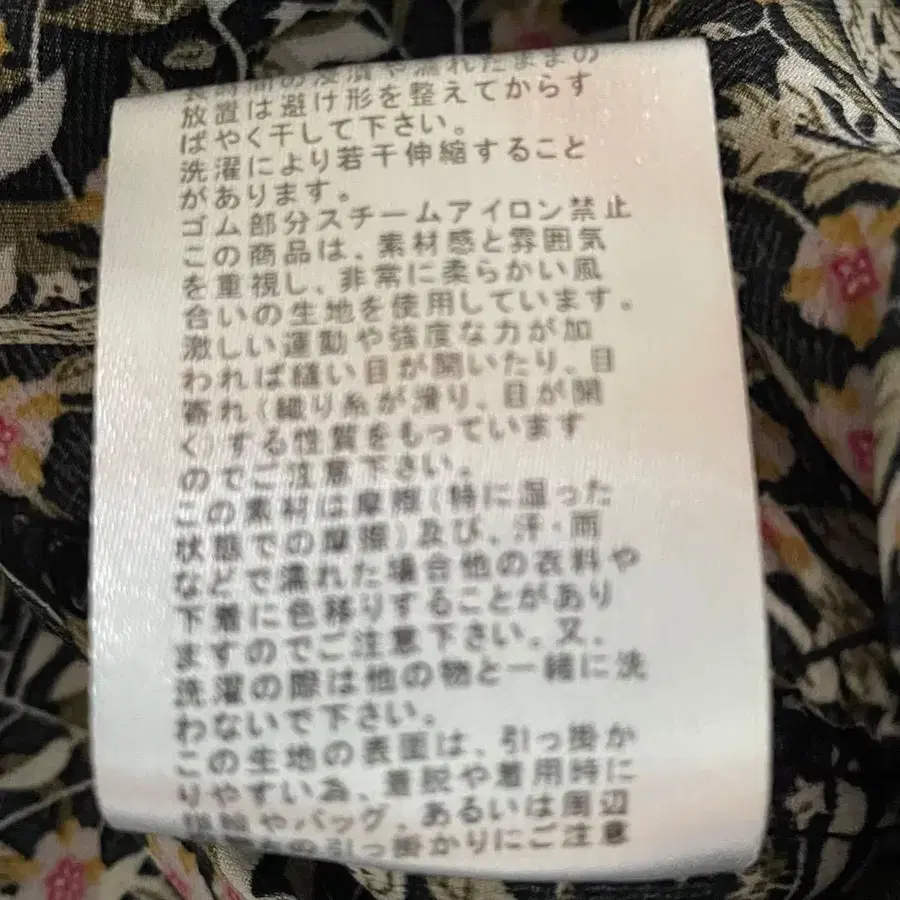 時間の浸漬や濡れたままの
放置は避け形を整えてからす
ばやく干して下さい。
洗濯により若干伸縮すること
があります。
ゴム部分スチームアイロン禁止
この商品は、素材感と雰囲気
を重視し、非常に柔らかい風
合いの生地を使用しています。
激しい運動や強度な力が加
われば縫い目が開いたり、目
寄れ(織り糸が滑り、目が開
く)する性質をもっています
のでご注意下さい。
この素材は摩擦(特に湿った
状態での摩擦)及び、汗・雨
などで濡れた場合他の衣料や
下着に色移りすることがあり
ますのでご注意下さい。又、
洗濯の際は他の物と一緒に洗
わないで下さい。
この生地の表面は、引っ掛か
りやすい為、着脱や着用時に
やバッグ、あるいは周辺
の引っ掛かりにご注意